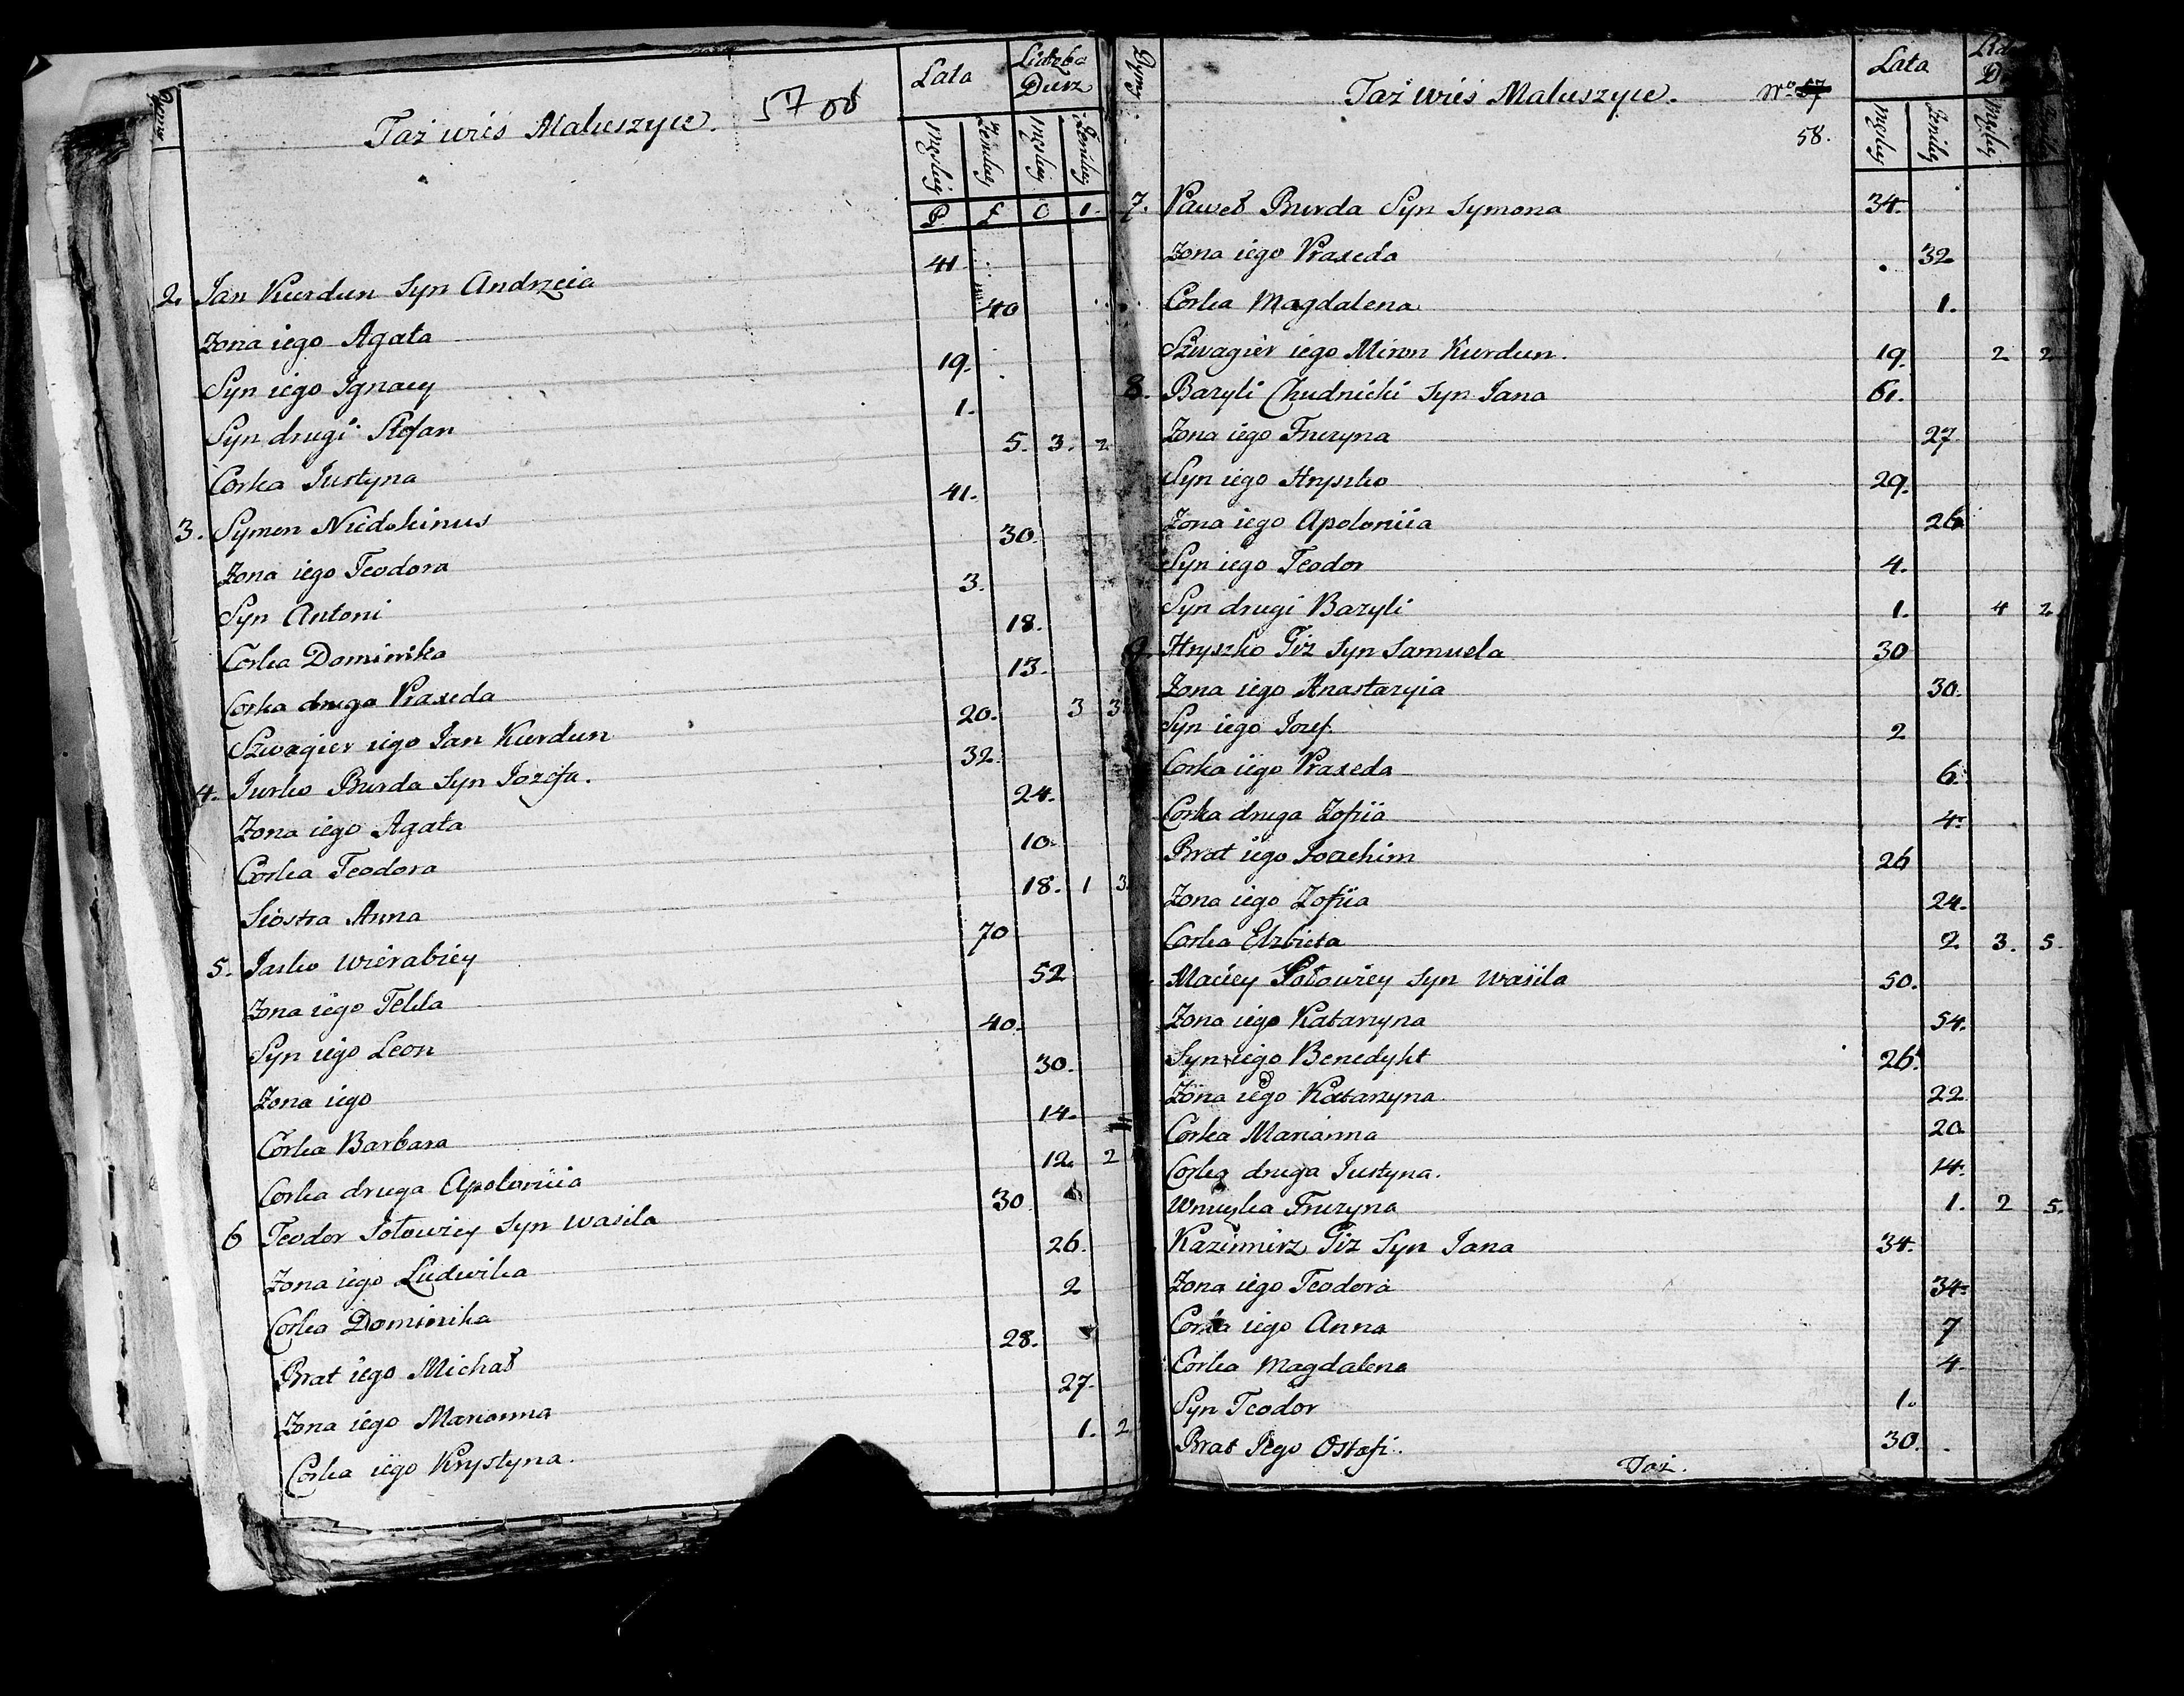 Dymy
Taż wieś Maluszyce. 57 об
Lata
Liczba Dusz
Męskiey Zenskiey Męskiey Zenskiey
P. Z O 1.
2. Jan Kurdun Syn Andrzeia 41.
Zona iego Agata 40
Syn iego Ignacy 19.
Syn drugi Stefan 1.
Corka Justyna 5. 3. 2
3. Symon 41.
Zona iego Teodora 30.
Syn Antoni 3.
Corka Dominika 18.
Corka druga Praxeda 13.
Szwagier iego Jan Kurdun 20. 3 3
4. Jurko Burda Syn Jozefa. 32.
Zona iego Agata 24.
Corka Teodora 10.
Siostra Anna 18. 1 3.
5. Jasko Wierabiey 70
Zona iego Tekla 52
Syn iego Leon 40.
Zona iego 30.
Corka Barbara 14.
Corka druga Apoloniia 12. 2
6 Teodor Sołowiey Syn Wasila 30
Zona iego Ludwika 26.
Corka Dominika 2
Brat iego Michał 28.
Zona iego Marianna 27.
Corka iego Krystyna. 1. 2
Dymy.
Taż wieś Maluszyce. No 57
58.
Lata
Męskiey Zenskiey Męskiey
7. Paweł Burda Syn Symona 34.
Zona iego Praxeda 32
Corka Magdalena 1.
Szwagier iego Miron Kurdun. 19. 2 2
8. Bazyli Chudnicki Syn Jana 61.
Zona iego Fruzyna 27
Syn iego Hryszko 29.
Zona iego Apoloniia 26
Syn iego Teodor 4.
Syn drugi Bazyli 1. 4 2
9. Hryszko Giz Syn Samuela 30
Zona iego Anastazyia 30.
Syn iego Jozef. 2
Corka iego Praxeda 6.
Corka druga Zofiia 4.
Brat iego Joachim 26
Zona iego Zofiia 24.
Corka Elzbieta 2 3. 5.
Maciey Sołowiey Syn Wasila 50.
Zona iego Katarzyna 54.
Syn iego Benedykt 26.
Zona iego Katarzyna 22
Corka Marianna 20
Corka druga Justyna. 14.
Wnuczka Fruzyna 1. 2 5.
Kazimierz Giz Syn Jana 34.
Zona iego Teodora 34.
Corka iego Anna 7
Corka Magdalena 4.
Syn Teodor 1.
Brat Jego Ostafi. 30.
Taż.